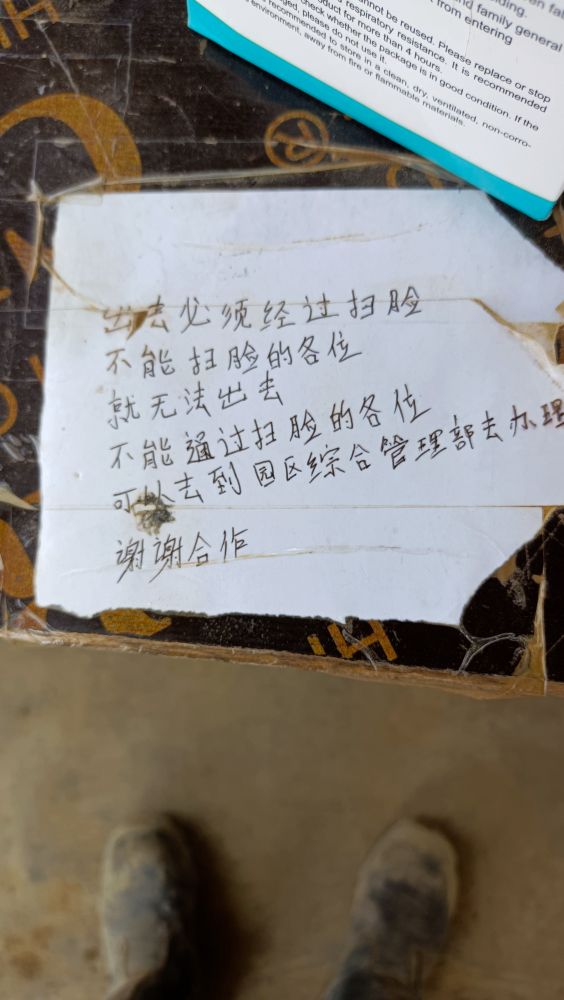 annot be reused. Please replace or stop
respiratory resistance. It is recommended
oduct for more than 4 hours.
check whether the package is in good condition. If the
please do not use it.
recommended to store in a clean, dry, ventilated, non-corro-
environment, away from fire or flammable materials.
and family general
from entering
出去必须经过扫脸
不能扫脸的各位
就无法出去
不能通过扫脸的各位
可以去到园区综合管理部去办理
谢谢合作